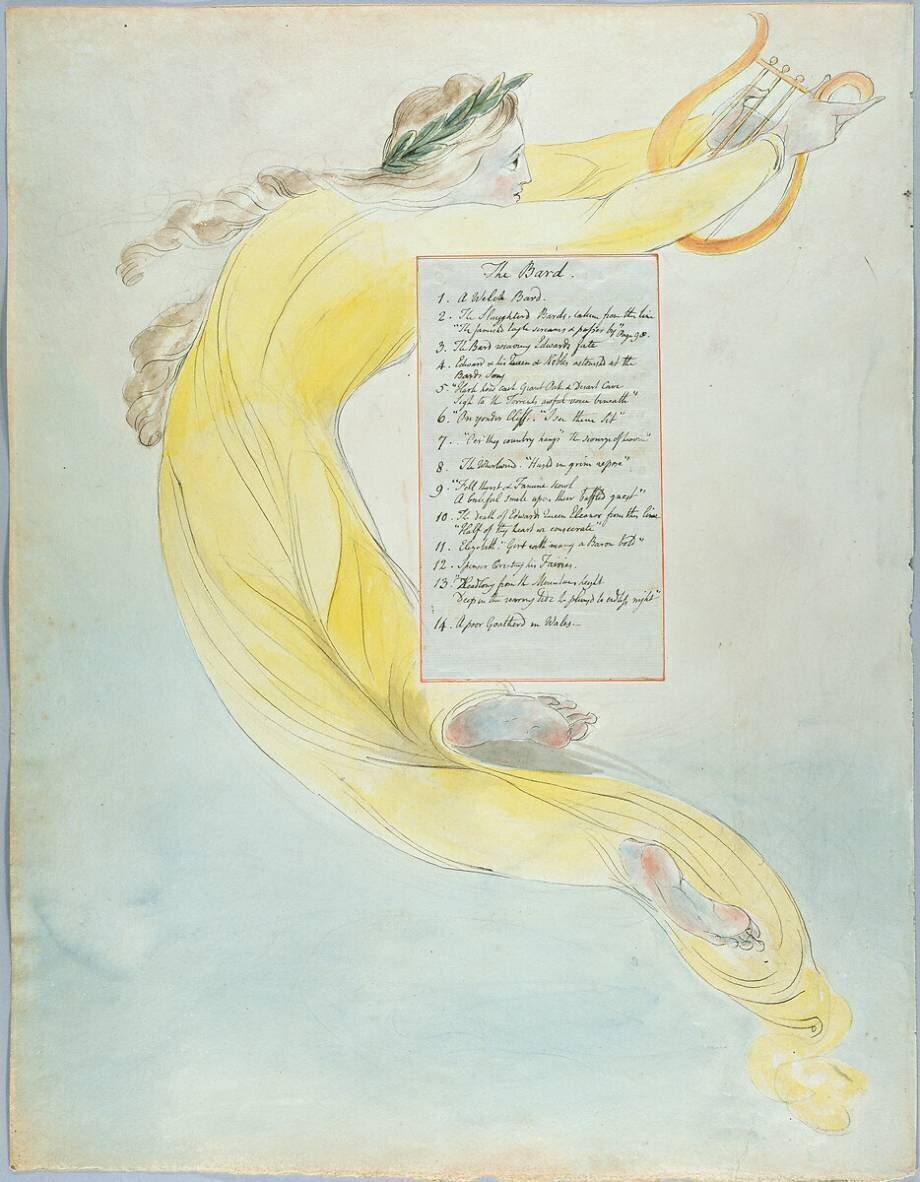 The Bard.
1. A Welch Bard.
2. The Slaughterd Bards, taken from the line
"The famishd Eagle screams & passes by" Page 98.
3. The Bard weaving Edwards fate
4. Edward & his Queen & Nobles astonishd at the
Bards Song
5. "Hark how each Giant Oak & Desart Cave
Sigh to the Torrents awful voice beneath"
6. "On yonder Cliffs "I see them Sit"
7. "O'er thy country hangs The scourge of heaven"
8. The Whirlwind. "Hush'd in grim repose"
9. "Fell thirst & Famine scowl
A baleful smile upon their baffled guest"
10. The death of Edwards Queen Eleanor from this line
"Half of thy heart we consecrate"
11. Elizabeth. "Girt with many a Baron bold"
12. Spenser Creating his Fairies.
13. "Headlong from the Mountains height
Deep in the roaring tide he plung'd to endless night"
14. A poor Goatherd in Wales.